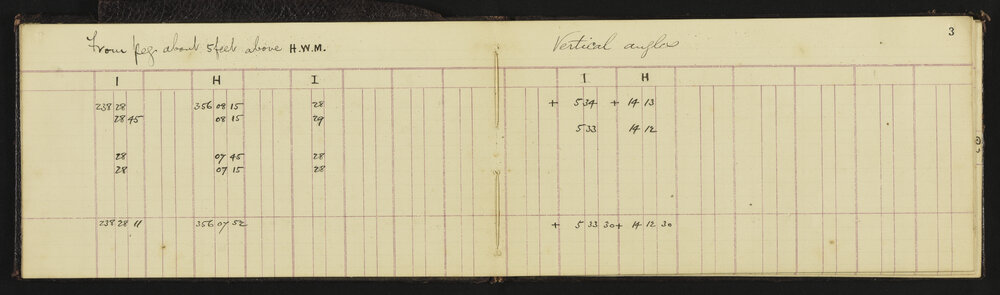 3
From peg about 5 feet above H.W.M. Vertical angles
I H I I H
238 28 356 08 15 28 + 5 34 + 14 13
28 45 08 15 29
5 33 14 12
28 07 45 28
28 07 15 28
238 28 11 356 07 52 + 5 33 30 + 14 12 30